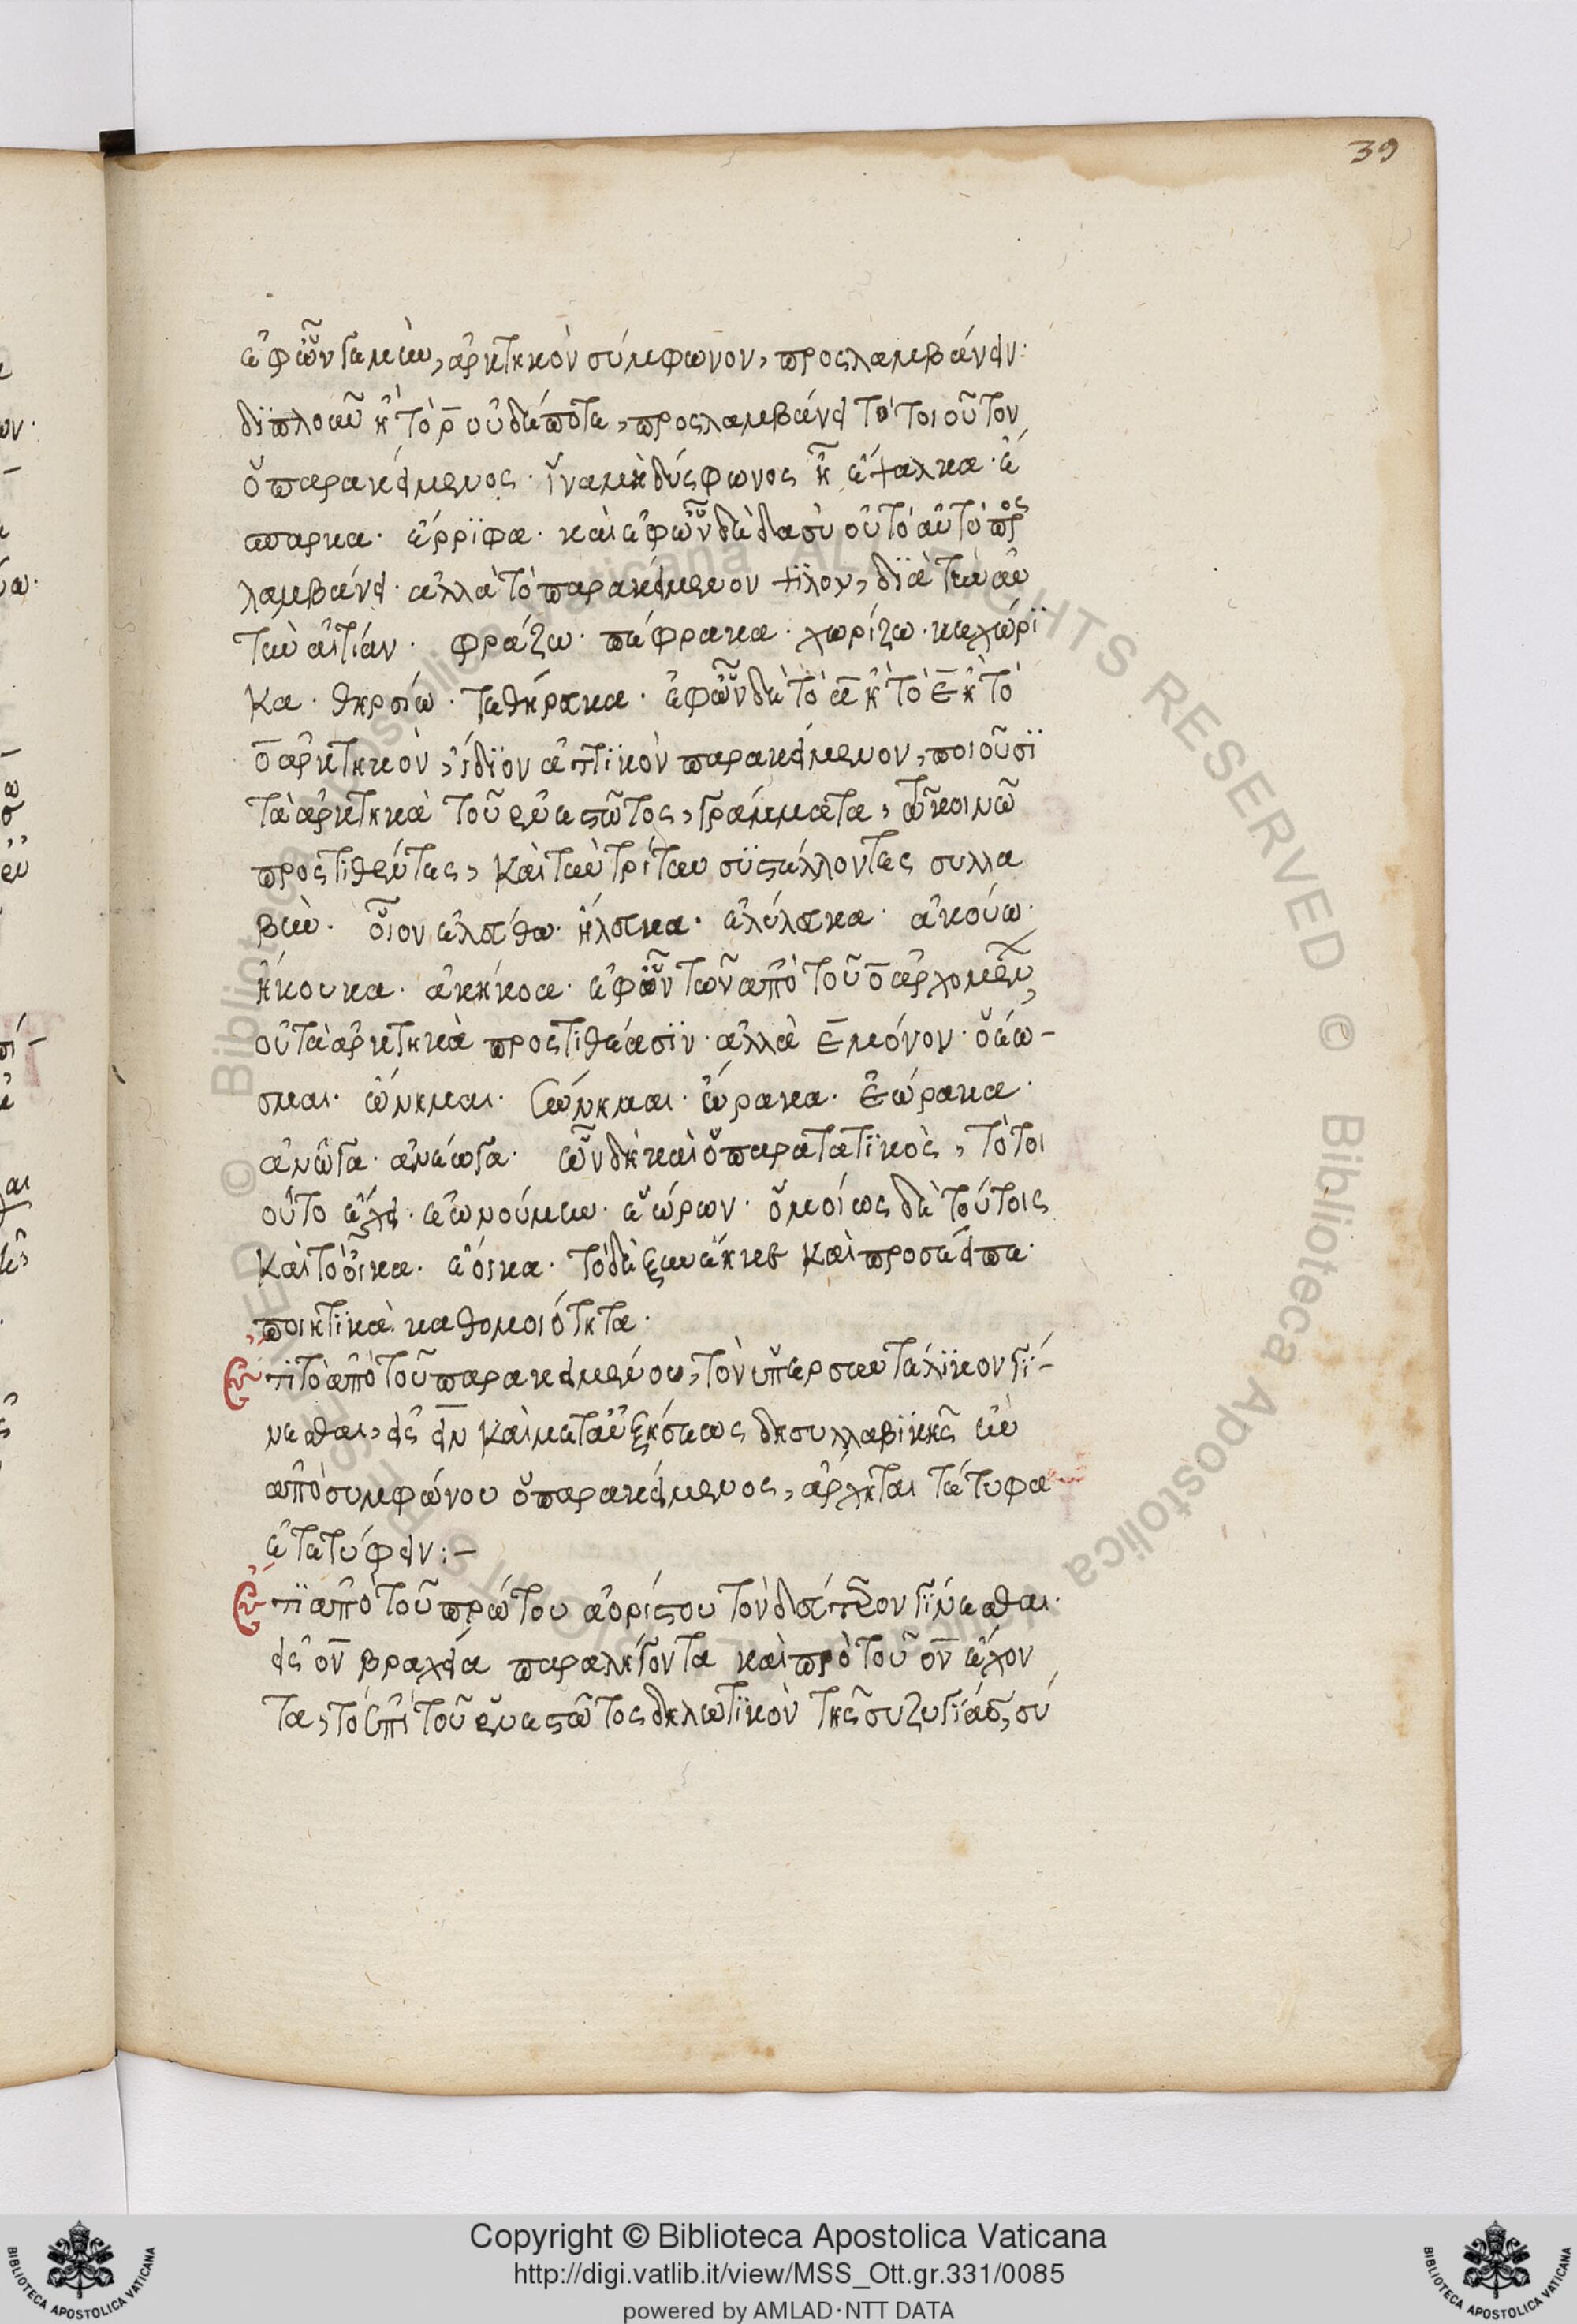 39
ἐφ' ὧν τὰ μὲν, ἀρκτικὸν σύμφωνον, προςλαμβάνειν:
διπλοῦν ἢ τὸ ρ̄ οὐδέποτε, προςλαμβάνει τὸ τοιοῦτον
ὁ παρακείμενος. ἵνα μὴ δύςφωνος ἢ ἔψαλκα. ἔ
σπαρκα. ἔρριφα. καὶ ἐφ' ὧν δὲ δασὺ οὐ τὸ αὐτὸ προς
λαμβάνει. ἀλλὰ τὸ παρακείμενον ψιλὸν, διὰ τὴν αὐ
τὴν αἰτίαν. φράζω. πέφρακα. χωρίζω. κεχώρι
κα. θηρσίω. τεθήρακα. ἐφ' ὧν δὲ τὸ ᾱ ἢ τὸ ε̄ ἢ τὸ
ο̄ ἀρκτικὸν, ἴδιον ἀττικὸν παρακείμενον, ποιοῦσι
τὰ ἀρκτικὰ τοῦ ἐνεστῶτος, γράμματα, τῶ κοινῶ
προςτιθέντες, καὶ τὴν τρίτην συστέλλοντες συλλα
βὴν. οἷον ἐλαύθω. ἤλακα. ἐλήλακα. ἀκούω.
ἤκουκα. ἀκήκοα. ἐφ' ὧν τῶν ἀπὸ τοῦ ο̄ ἀρχομένων,
οὐ τὰ ἀρκτικὰ προςτιθέασιν. ἀλλὰ ε̄ μόνον.
ὤνημαι. ἐώνημαι. ὥρακα. ἑώρακα.
ἀνῶγα. ἀνέωγα. ὧν δὴ καὶ ὁ παρατατικὸς, τὸ τοι
οῦτο ἔχει. ἐωνούμην. ἑώρων. ὁμοίως δὲ τούτοις
καὶ τὸ οἶκα. ἔοικα. τὸ δὲ ξυνέηκεν καὶ προσέειπε.
ποιητικὰ καθομοιότητα.
Ἔτι τὸ ἀπὸ τοῦ παρακειμένου, τὸν ὑπερσυντέλικον γί-
νεσθαι, εἰς ειν καὶ μετ' αὐξήσεως δὴ συλλαβικῆς ἐὰν
ἀπὸ συμφώνου ὁ παρακείμενος, ἄρχηται τέτυφα
ἐτετύφειν:-
Ἔτι ἀπὸ τοῦ πρώτου ἀορίστου τὸν δεύτερον γίνεσθαι.
εἰς ον βραχεία παραλήγοντα καὶ πρὸ τοῦ ον ἔχον
τα, τὸ ἐπὶ τοῦ ἐνεστῶτος δηλωτικὸν τῆς συζυγίας, σύ
Copyright © Biblioteca Apostolica Vaticana
http://digi.vatlib.it/view/MSS_Ott.gr.331/0085
powered by AMLAD·NTT DATA